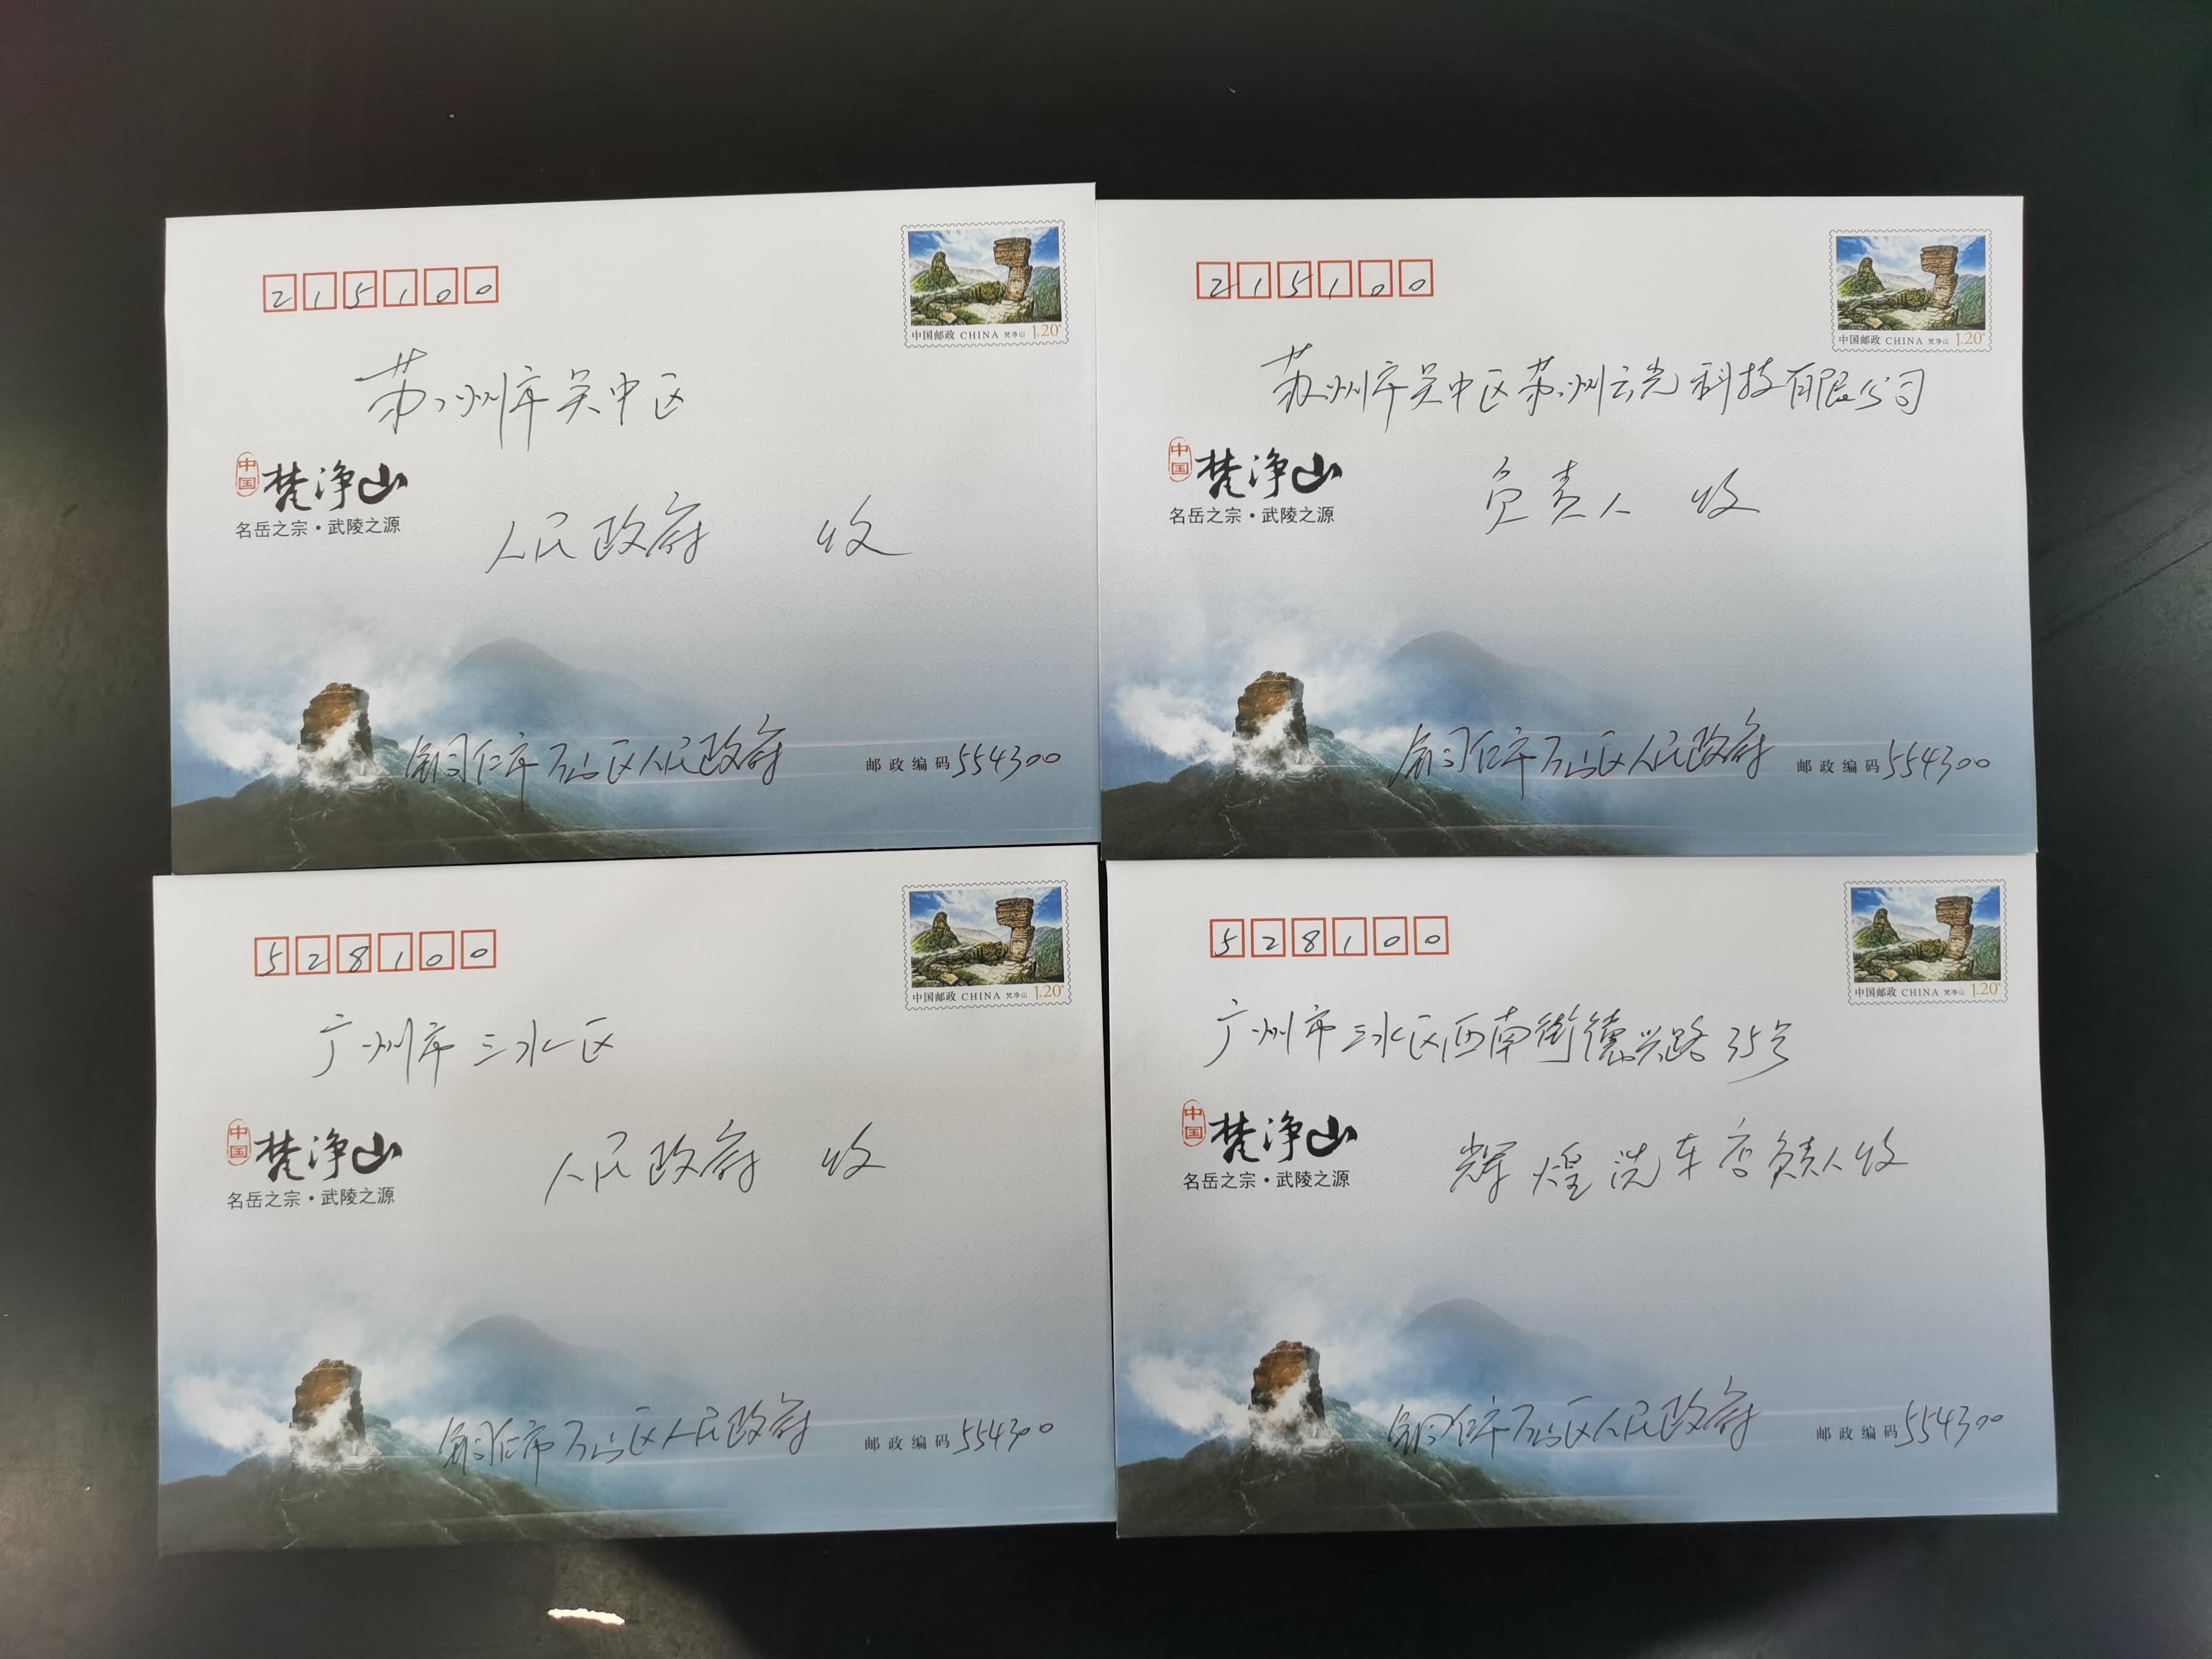 215100
中国邮政 CHINA 梵净山 1.20
苏州市吴中区
中国
梵净山
名岳之宗·武陵之源
人民政府 收
铜仁市万山区人民政府 邮政编码 554300
215100
中国邮政 CHINA 梵净山 1.20
苏州市吴中区苏州云光科技有限公司
中国
梵净山
名岳之宗·武陵之源
负责人 收
铜仁市万山区人民政府 邮政编码 554300
528100
中国邮政 CHINA 梵净山 1.20
广州市三水区
中国
梵净山
名岳之宗·武陵之源
人民政府 收
铜仁市万山区人民政府 邮政编码 554300
528100
中国邮政 CHINA 梵净山 1.20
广州市三水区西南街德兴路35号
中国
梵净山
名岳之宗·武陵之源
辉煌洗车店负责人收
铜仁市万山区人民政府 邮政编码 554300